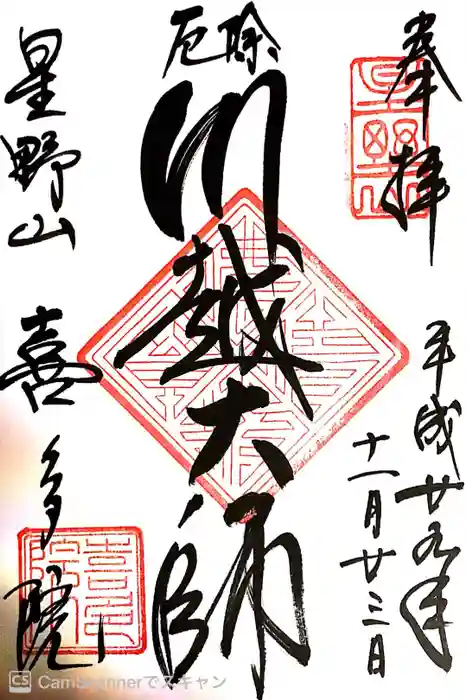 奉拝
平成廿九年
十一月廿三日
厄除
川越大師
星野山
喜多院
CS CamScannerでスキャン